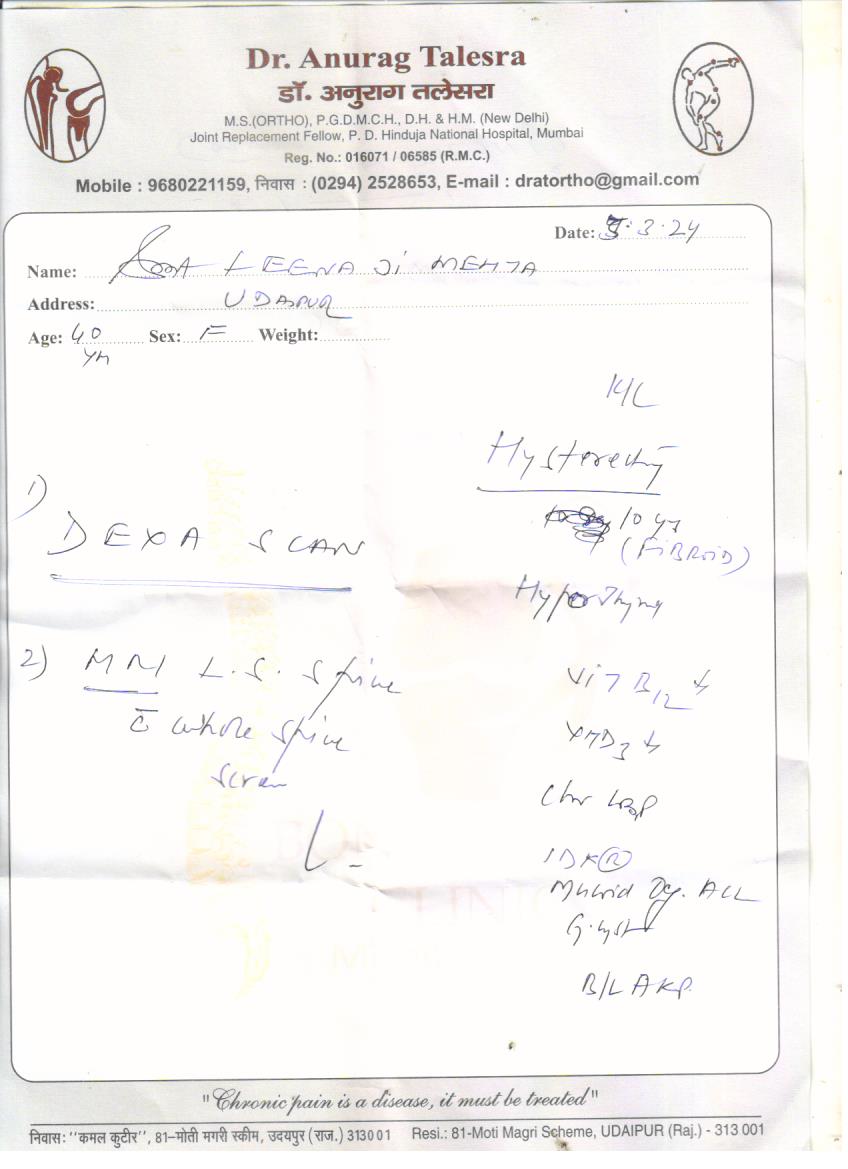 Dr. Anurag Talesra
डॉ. अनुराग तलेसरा
M.S.(ORTHO), P.G.D.M.C.H., D.H. & H.M. (New Delhi)
Joint Replacement Fellow, P. D. Hinduja National Hospital, Mumbai
Reg. No.: 016071 / 06585 (R.M.C.)
Mobile : 9680221159, निवास : (0294) 2528653, E-mail : dratortho@gmail.com
Date: 5.3.24
Name: LEENA Ji MEHTA
Address: UDAIPUR
Age: 40 yrs Sex: F Weight:
Hysterectomy
10 yrs
(FiBRoiD)
1) DEXA SCAN
2) MRI L.S. Spine
c̄ whole spine
screen
Vit B12 ↓
Vit D3 ↓
Chr LBP
IDK (R)
Mucoid Dg. ACL
G. cyst
B/L AKP.
"Chronic pain is a disease, it must be treated"
निवास: "कमल कुटीर", 81-मोती मगरी स्कीम, उदयपुर (राज.) 313001 Resi.: 81-Moti Magri Scheme, UDAIPUR (Raj.) - 313 001